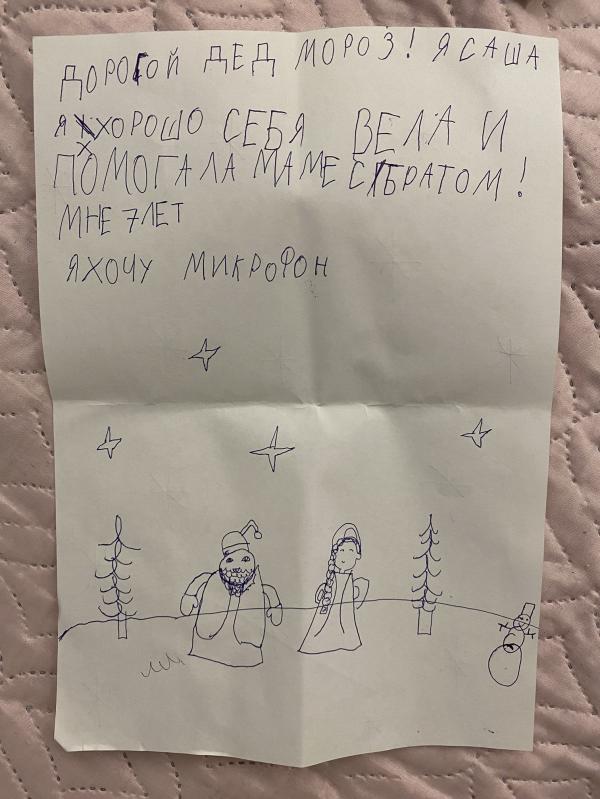 ДОРОГОЙ ДЕД МОРОЗ! Я САША
Я ХОРОШО СЕБЯ ВЕЛА И
ПОМОГАЛА МАМЕ С БРАТОМ!
МНЕ 7 ЛЕТ
Я ХОЧУ МИКРОФОН